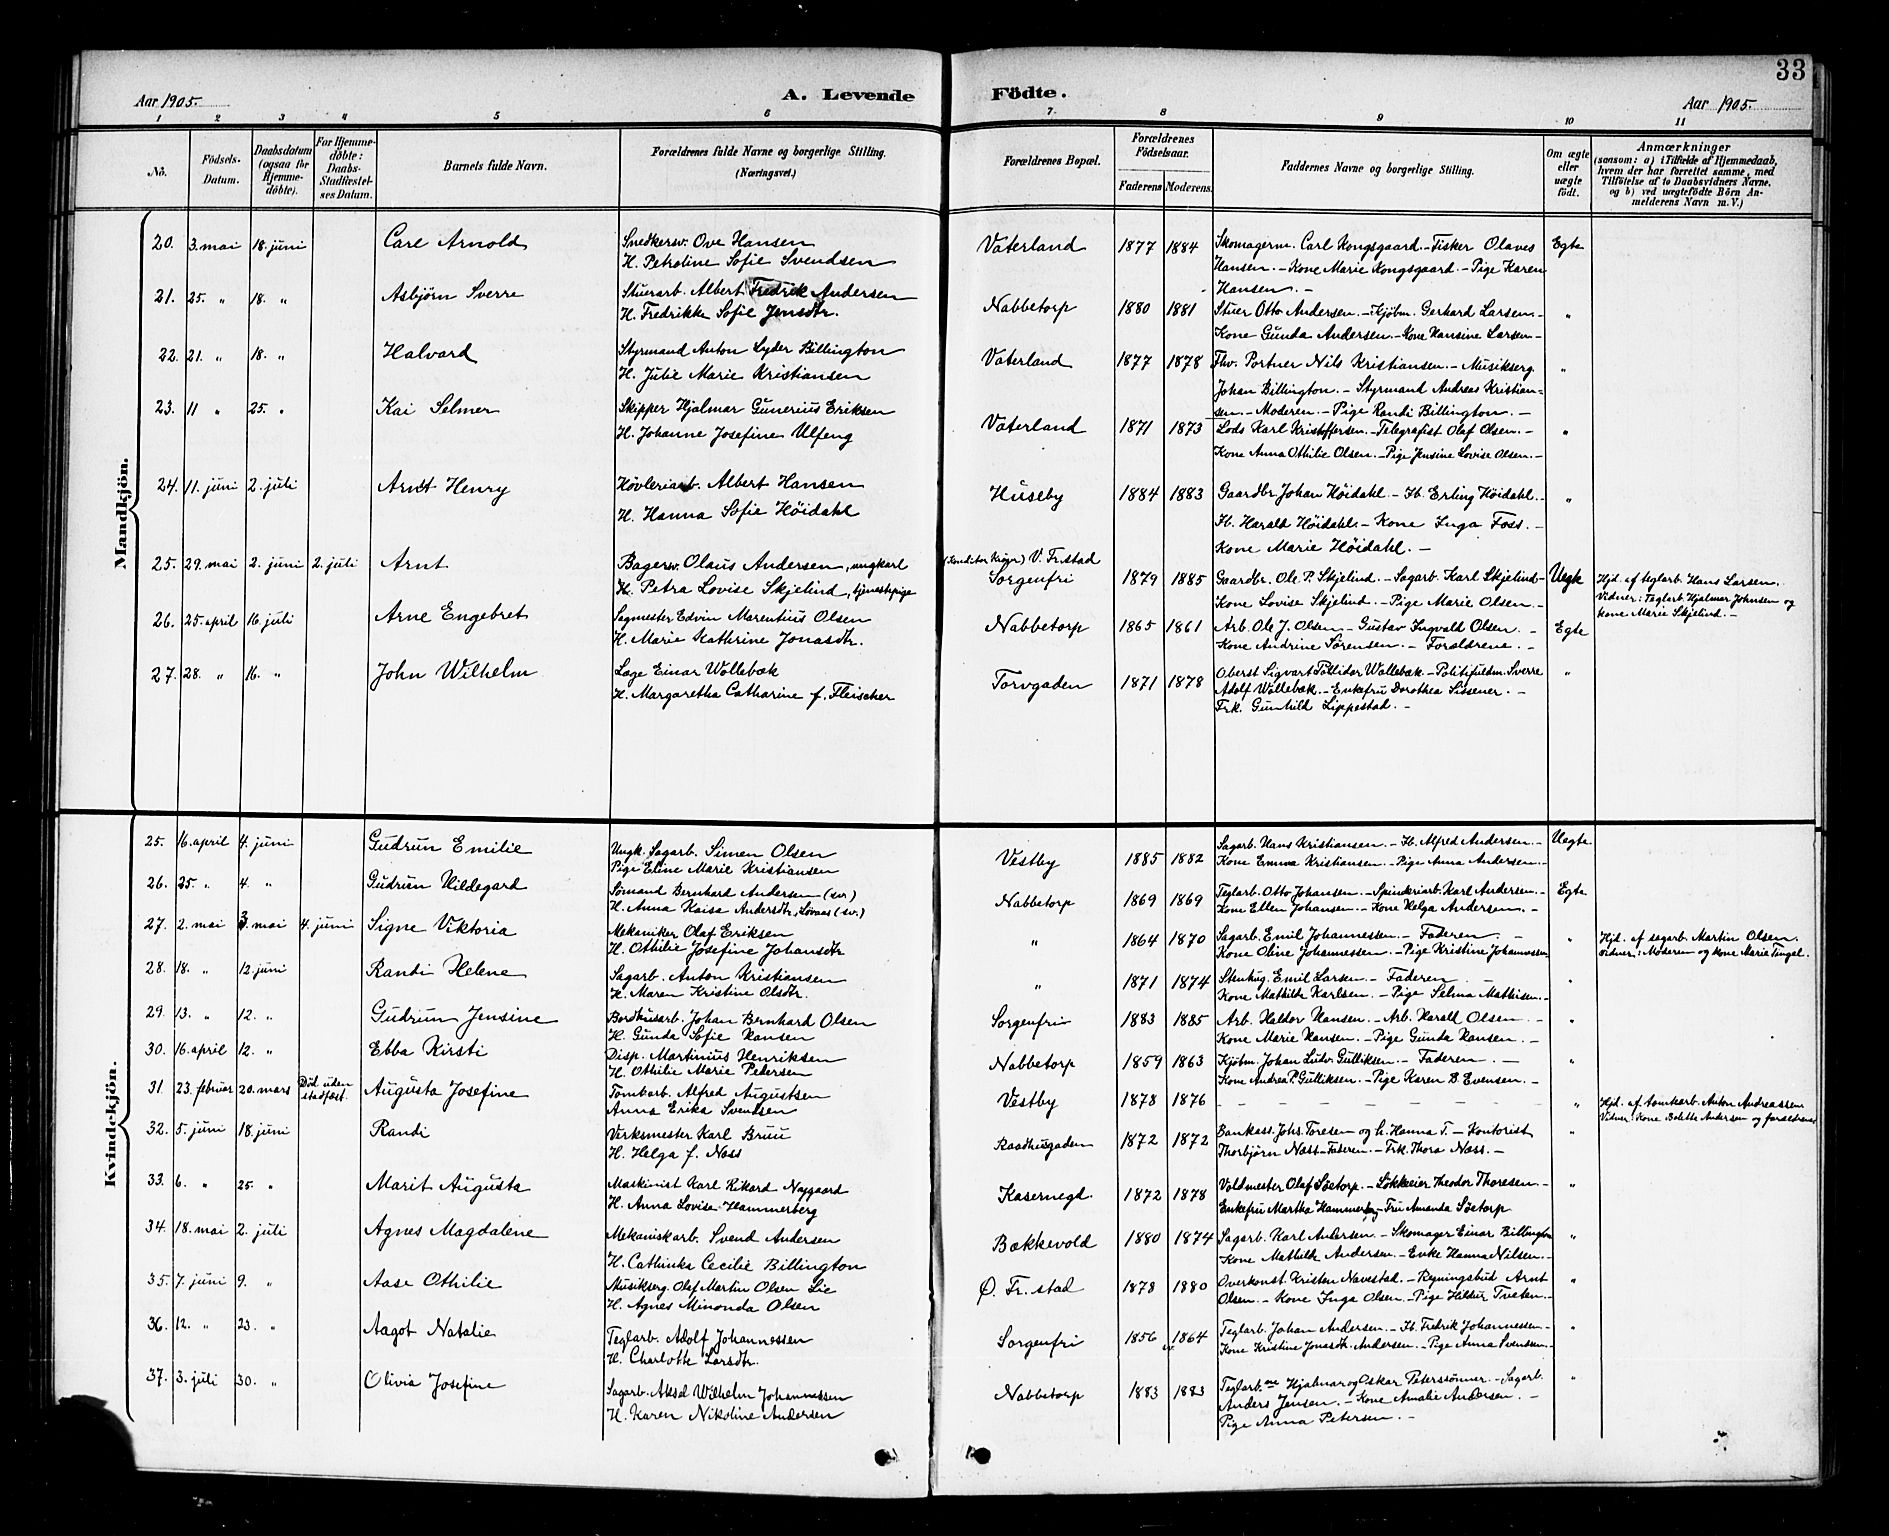 33
Aar 1905. A. Levende Födte. Aar 1905.
1 2 3 4 5 6 7 8 9 10 11
No.
Födsels-
Datum.
Daabsdatum
(ogsaa for
Hjemme-
döbte).
For Hjemme-
döbte:
Daabs-
Stadfæstel-
ses Datum.
Barnets fulde Navn.
Forældrenes fulde Navne og borgerlige Stilling.
(Næringsvei.)
Forældrenes Bopæl.
Forældrenes
Födselsaar.
Faderens Moderens.
Faddernes Navne og borgerlige Stilling.
Om ægte
eller
uægte
födt.
Anmærkninger
(saasom: a) i Tilfælde af Hjemmedaab,
hvem der har forrettet samme, med
Tilföielse af to Daabsvidners Navne,
og b) ved uægtefödte Börn An-
melderens Navn m. V.)
Mandkjön.
20. 3. mai 18. juni Carl Arnold Snedkersv. Ove Hansen Vaterland 1877 1884 Skomagerm. Carl Kongsgaard. - Fisker Olaves Egte
H. Petroline Sofie Svendsen Hansen. - Kone Marie Kongsgaard. - Pige Karen
Hansen. -
21. 25. " 18. " Asbjörn Sverre Stuerarb. Albert Fredrik Andersen Nabbetorp 1880 1881 Stuer Otto Andersen. - Kjöbm. Gerhard Larsen. - "
H. Fredrikke Sofie Jensdtr. Kone Gunda Andersen. - Kone Hansine Larsen -
22. 21. " 18. " Halvard Styrmand Anton Lyder Billington Vaterland 1877 1878 Fhv. Portner Nils Kristiansen. - Musikserg. "
H. Julie Marie Kristiansen Johan Billington. - Styrmand Andreas Kristian-
sen. - Moderen. - Pige Randi Billington. -
23. 11 " 25. " Kai Selmer Skipper Hjalmar Gunerius Eriksen Vaterland 1871 1873 Lods Karl Kristoffersen. - Telegrafist Olaf Olsen. - "
H. Johanne Josefine Ulfeng Kone Anna Othilie Olsen. - Pige Jensine Lovise Olsen. -
24. 11. juni 2. juli Arndt Henry Hövleriarb. Albert Hansen Huseby 1884 1883 Gaardbr. Johan Höidahl. - Fb. Erling Höidahl. - "
H. Hanna Sofie Höidahl Fb. Harald Höidahl. - Kone Inga Foss. -
Kone Marie Höidahl. -
25. 29. mai 2. juni 2. juli Arnt Bagersv. Olaus Andersen, ungkarl (Konditor Kröger) V. Fr.stad
H. Petra Lovise Skjelind, tjenestepige Sorgenfri 1879 1885 Gaardbr. Ole P. Skjelind. - Sagarb. Karl Skjelind - Uegte Hjd. af teglarb. Hans Larsen.
Kone Lovise Skjelind. - Pige Marie Olsen. - Vidner: Teglarb. Hjalmar Johnsen og
kone Marie Skjelind. -
26. 25. april 16. juli Arne Engebret Sagmester Edvin Marentius Olsen Nabbetorp 1865 1861 Arb. Ole J. Olsen - Gustav Ingvald Olsen. - Egte
H. Marie Kathrine Jonasdtr. Kone Andrine Sörensen. - Forældrene. -
27. 28. " 16. " John Wilhelm Læge Einar Wollebæk Torvgaden 1871 1878 Oberst Sigvart Wollebæk. - Politifuldm. Sverre "
H. Margaretha Catharine f. Fleischer Adolf Wollebæk. - Enkefru Dorothea Sissener. -
Frk. Gunhild Lippestad. -
Kvindekjön.
25. 16. april 4. juni Gudrun Emilie Ungk. Sagarb. Simen Olsen Vestby 1885 1882 Sagarb. Hans Kristiansen. - Fb. Alfred Andersen. - Uegte
Pige Eline Marie Kristiansen Kone Emma Kristiansen. - Pige Anna Andersen. -
26. 25. " 4. " Gudrun Hildegard Sömand Bernhard Andersen (sv.) Nabbetorp 1869 1869 Teglarb. Otto Johansen. - Spinderiarb. Karl Andersen. - Egte
H. Anna Kaisa Andersdtr. Lovaas (sv.) Kone Ellen Johansen. - Kone Helga Andersen. -
27. 2. mai 3. mai 4. juni Signe Viktoria Mekaniker Olaf Eriksen " 1864 1870 Sagarb. Emil Johannessen. - Faderen. - " Hjd. af sagarb. Martin Olsen.
H. Othilie Josefine Johansdtr Kone Oline Johannessen. - Pige Kristine Johannessen Vidner: Moderen og kone Marie Tingel.
28. 18. " 12. juni Randi Helene Sagarb. Anton Kristiansen " 1871 1874 Stenhug. Emil Larsen. - Faderen. - "
H. Maren Kristine Olsdtr. Kone Mathilde Karlsen. - Pige Selma Mathisen. -
29. 13. " 12. " Gudrun Jensine Bordhusarb. Johan Bernhard Olsen Sorgenfri 1883 1885 Arb. Haldor Hansen. - Arb. Harald Olsen. - "
H. Gunda Sofie Hansen Kone Marie Hansen. - Pige Gunda Hansen. -
30. 16. april 12. " Ebba Kirsti Disp. Martinius Henriksen Nabbetorp 1859 1863 Kjöbm. Johan Ludv. Gulliksen. - Faderen. - "
H. Othilie Marie Pedersen Kone Andrea P. Gulliksen. - Pige Karen B. Evensen. -
31. 23. februar 20. mars Död uden stadfæst. Augusta Josefine Tomtarb. Alfred Augustsen Vestby 1878 1876 - - - - - - - - " Hjd. af tomtarb. Anton Andreassen.
Anna Erika Svendsen Vidner: Kone Bolette Andersen og forældrene
32. 5. juni 18. juni Randi Verksmester Karl Bruu Raadhusgaden 1872 1872 Bankass. Johs. Toresen og h. Hanna T. - Kontorist "
H. Helga f. Næss Thorbjörn Næss - Faderen. - Frk. Thora Næss. -
33. 6. " 25. " Marit Augusta Maskinist Karl Rikard Nygaard Kasernegd. 1872 1878 Voldmester Olaf Sötorp. - Theodor Thoresen. - "
H. Anna Lovise Hammerberg Enkefru Martha Hammerberg - Fru Amanda Sötorp
34. 18. mai 2. juli Agnes Magdalene Mekaniskarb. Svend Andersen Bakkevold 1880 1874 Sagarb. Karl Andersen. - Skomager Einar Billington "
H. Cathinka Cecilie Billington Kone Mathilde Andersen. - Enke Hanna Nilsen. -
35. 7. juni 9. " Aase Othilie Musikserg. Olaf Martin Olsen Lie Ø. Fr.stad 1878 1880 Overkonst. Kristen Navestad. - Regningsbud Arnt "
H. Agnes Minonda Olsen Olsen. - Kone Inga Olsen. - Pige Hildur Tveten. -
36. 12. " 23. " Aagot Natalie Teglarb. Adolf Johannessen Sorgenfri 1856 1864 Teglarb. Johan Andersen. - Fb. Fredrik Johannessen. - "
H. Charlotte Larsdtr. Kone Kristine Jonasdtr. Andersen. - Pige Anna Svendsen. -
37. 3. juli 30. " Olivia Josefine Sagarb. Aksel Wilhelm Johannessen Nabbetorp 1883 1883 Teglarb.ne Hjalmar og Oskar Peterssönner. - Sagarb. "
H. Karen Nikoline Andersen Anders Jensen. - Kone Amalie Andersen. -
Pige Anna Petersen. -